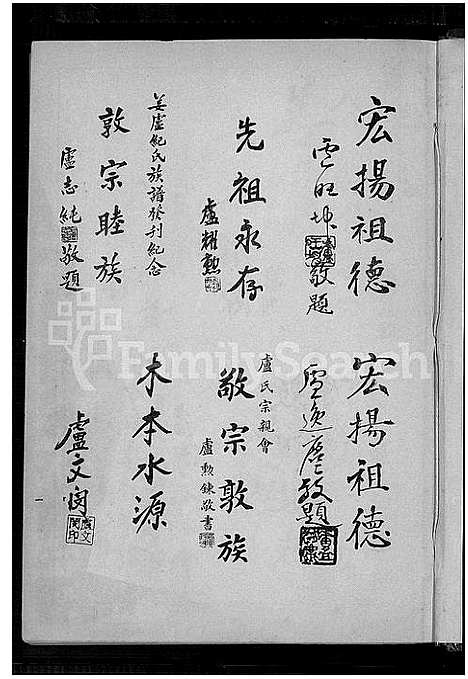 宏揚祖德
盧旺坤敬題
先祖永存
盧耀勲
姜盧紀氏族譜發刊紀念
敦宗睦族
盧志純敬題
宏揚祖德
敬題
盧氏宗親會
敬宗敦族
盧勲鍊敬書
木本水源
盧文閔
盧文閔印
FamilySearch